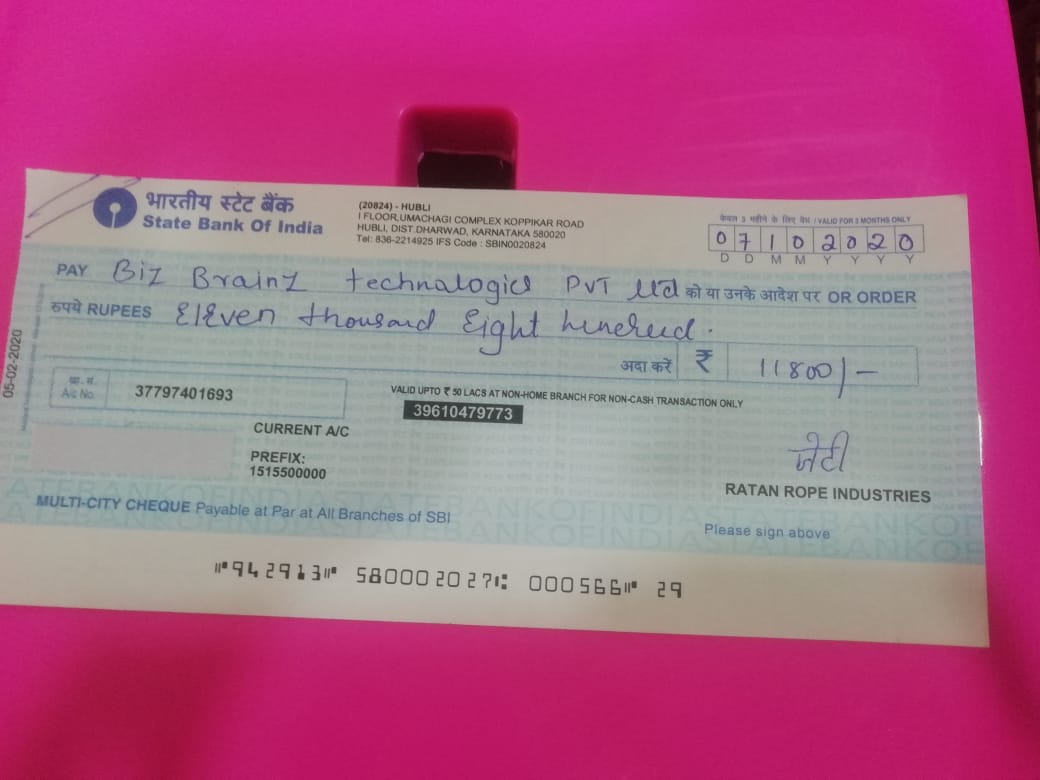 भारतीय स्टेट बैंक
State Bank Of India
(20824) - HUBLI
I FLOOR,UMACHAGI COMPLEX KOPPIKAR ROAD
HUBLI, DIST.DHARWAD, KARNATAKA 580020
Tel: 836-2214925 IFS Code : SBIN0020824
केवल 3 महीने के लिए वैध / VALID FOR 3 MONTHS ONLY
0 7 1 0 2 0 2 0
D D M M Y Y Y Y
PAY Biz Brainz technalogies PVT Ltd को या उनके आदेश पर OR ORDER
रुपये RUPEES Eleven thousand Eight hundred.
अदा करें ₹ 11800/-
05-02-2020
खा. सं.
A/c No. 37797401693
VALID UPTO ₹ 50 LACS AT NON-HOME BRANCH FOR NON-CASH TRANSACTION ONLY
39610479773
CURRENT A/C
PREFIX:
1515500000
RATAN ROPE INDUSTRIES
MULTI-CITY CHEQUE Payable at Par at All Branches of SBI
Please sign above
⑈942913⑈ 580002027⑆ 000566⑈ 29